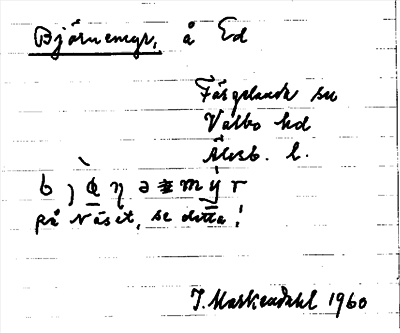 Björnemyr, å Ed
Färgelanda sn
Valbo hd
Älvsb. l.
på Näset, se detta!
1960